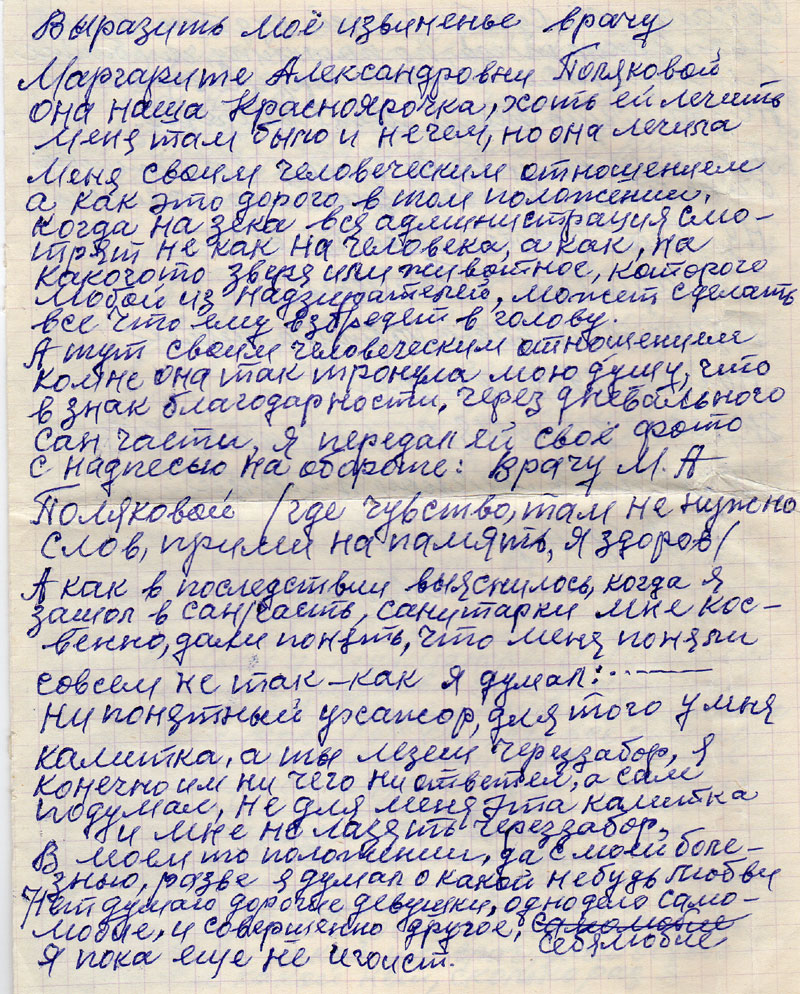 Выразить моё извиненье врачу
Маргарите Александровни Поляковой
она наша Красноярочка, хоть ей лечить
меня там было и нечем, но она лечила
меня своим человеческим отношением
а как это дорого в том положении,
когда на зека вся администрация смо-
трят не как на человека, а как, на
какогото зверя или животное, которого
любой из надзирателей, может сделать
все что ему взбредет в голову.
А тут своим человеческим отношением
комне она так тронула мою душу, что
в знак благодарности, через дневального
сан части, я передал ей своё фото
с надпесью на обороте: Врачу М. А
Поляковой (где чувство, там не нужно
слов, прими на память, я здоров (
А как в последствии выяснилось, когда я
зашол в сан/часть, санитарки мне кос-
венно, дали понять, что меня поняли
совсем не так-как я думал: ——
ни понятный ухажор, для того у мня
калитка, а ты лезеш череззабор, я
конечно им ни чего ни ответел, а сам
подумал, не для меня эта калитка
и мне не лазять череззабор,
В моем то положении, да с моей боле-
знью, разве я думал о какой небудь любви
Нет думаю дорогие девушки, однодело само-
любие, и совершенно другое, самолюбие
себялюбие
Я пока еще не игоист.